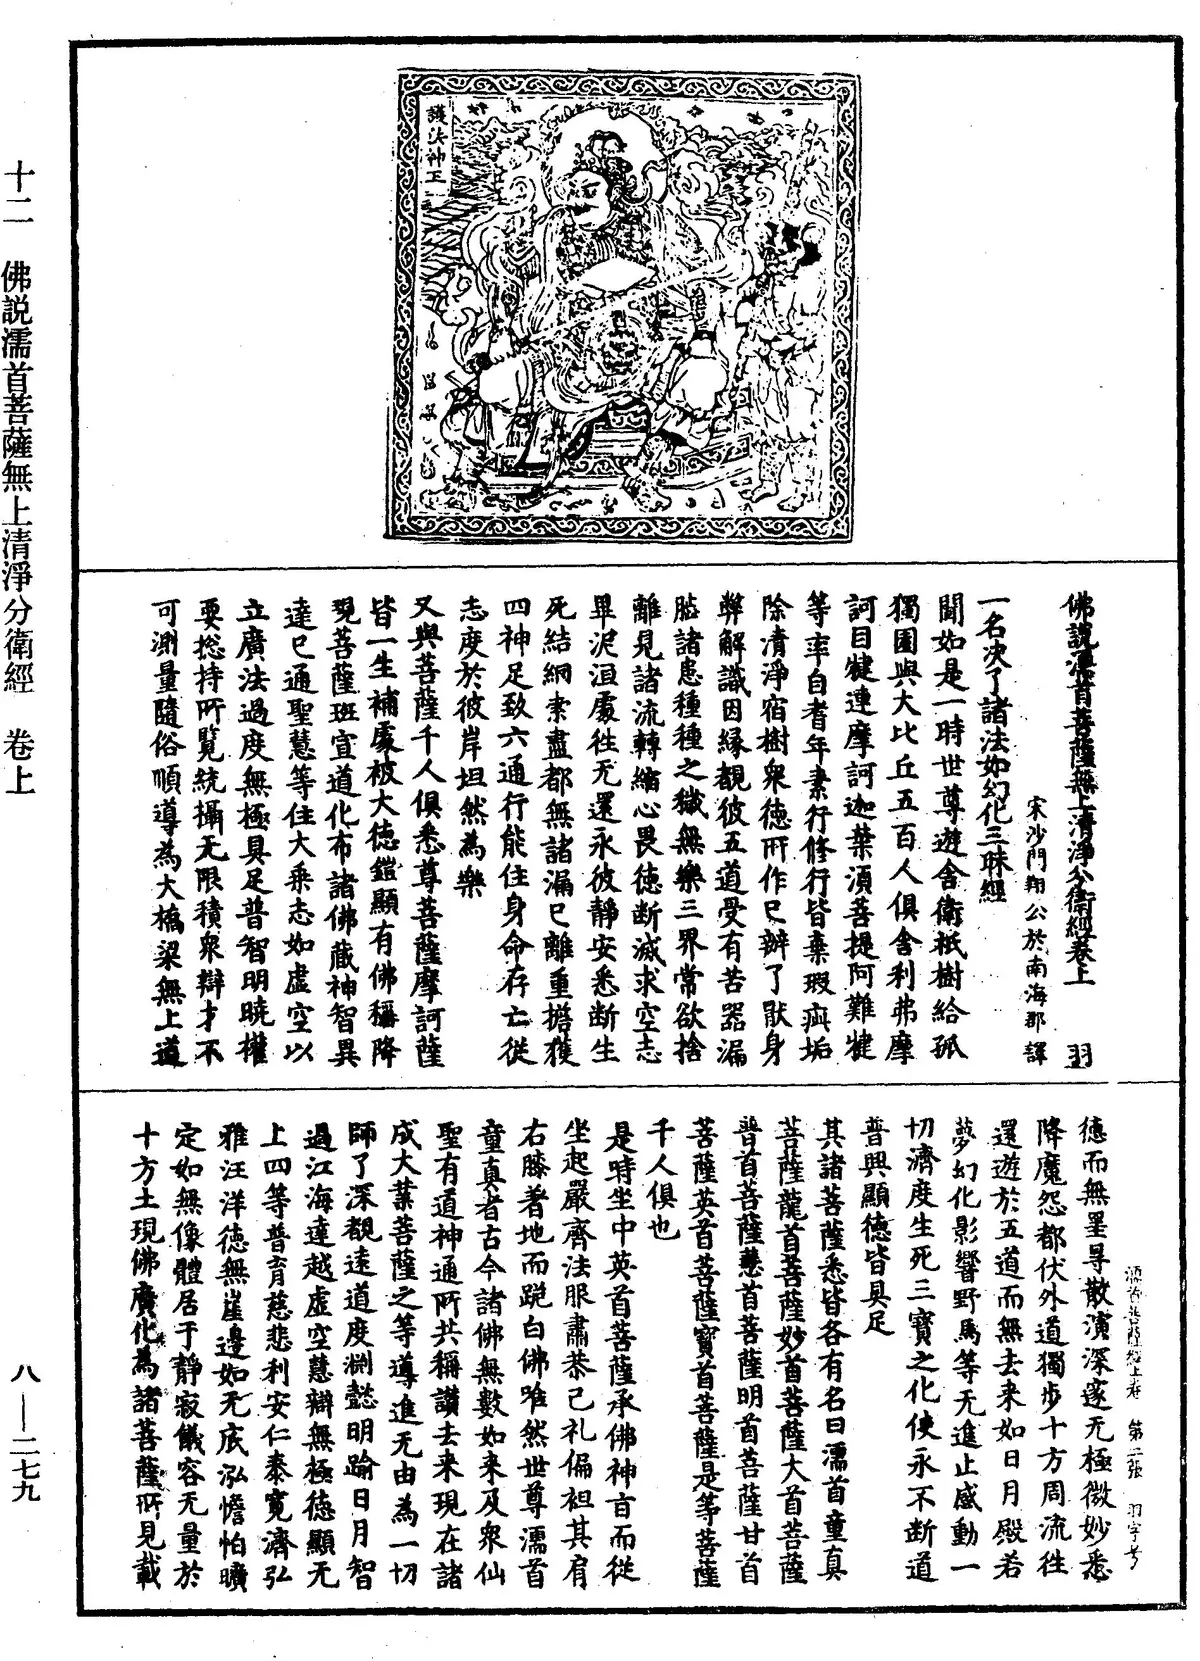 十二　佛説濡首菩薩無上清淨分衛經　卷上
八——二七九
護法神王
佛說濡首菩薩無上清淨分衛經卷上　羽
宋沙門翔公於南海郡譯
一名决了諸法如幻化三昧經
聞如是一時世尊遊舍衛祇樹給孤
獨園與大比丘五百人俱舍利弗摩
訶目犍連摩訶迦葉須菩提阿難犍
等率自耆年素行修行皆棄瑕疵垢
除清淨宿樹衆德所作已辦了猒身
弊解識因緣覩彼五道受有苦器漏
脳諸恚種種之穢無樂三界常欲捨
離見諸流轉縮心畏徳斷滅求空志
畢泥洹處徃无還永彼靜安悉斷生
死結網索盡都無諸漏已離重擔獲
四神足致六通行能住身命存亡從
志度於彼岸坦然為樂
又與菩薩千人俱悉尊菩薩摩訶薩
皆一生補處被大徳鎧顯有佛稱降
現菩薩班宣道化布諸佛藏神智異
達已通聖慧等住大乘志如虛空以
立廣法過度無極具足普智明曉權
要揔持所覧統攝无限積衆辯才不
可測量隨俗順導為大橋梁無上道
徳而無罣㝵散演深邃无極微妙悉
降魔怨都伏外道獨步十方周流徃
還遊於五道而無去来如日月殿若
夢幻化影響野馬等无進止感動一
切濟度生死三寶之化使永不斷道
普興顯德皆具足
其諸菩薩悉皆各有名曰濡首童真
菩薩龍首菩薩妙首菩薩大首菩薩
普首菩薩慧首菩薩明首菩薩甘首
菩薩英首菩薩寶首菩薩是等菩薩
千人俱也
是時坐中英首菩薩承佛神旨而從
坐起嚴齊法服肅恭己礼偏袒其肩
右膝著地而跪白佛唯然世尊濡首
童真者古今諸佛無數如来及衆仙
聖有道神通所共稱讚去来現在諸
成大業菩薩之等導進无由為一切
師了深覩遠道度淵懿明踰日月智
過江海達越虛空慧辯無極徳顯无
上四等普育慈悲利安仁泰寬濟弘
雅汪洋徳無崖邊如无底泓憺怕曠
定如無像體居于靜寂儀容无量於
十方土現佛廣化為諸菩薩所見載
濡首菩薩經上卷　第二張　羽字号